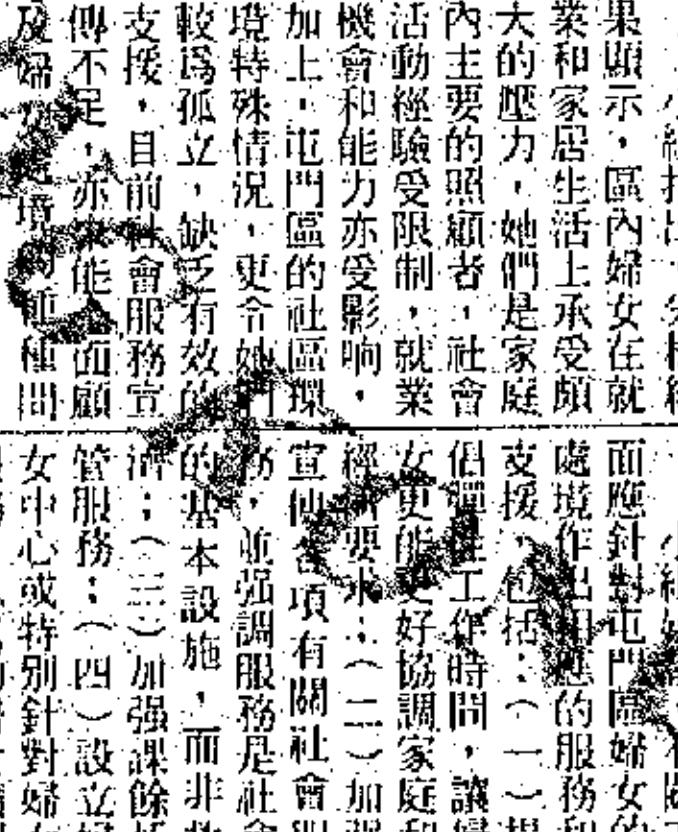 果顯示，區內婦女在就
業和家居生活上承受頗
大的壓力，她們是家庭
內主要的照顧者，社會
活動經驗受限制，就業
機會和能力亦受影响，
加上，屯門區的社區環
境特殊情況，更令她們
較爲孤立，缺乏有效的
支援，目前社會服務宣
傳不足，亦未能全面顧
及婦女處境的種種問
面應針對屯門區婦女的
處境作出相應的服務和
支援，包括：（一）提
倡彈性工作時間，讓婦
女更能更好協調家庭和
經濟要求；（二）加
宣傳各項有關社會
務，並强調服務是社會
的基本設施，而非救
濟；（三）加强課餘
管服務；（四）設立婦
女中心或特別針對婦